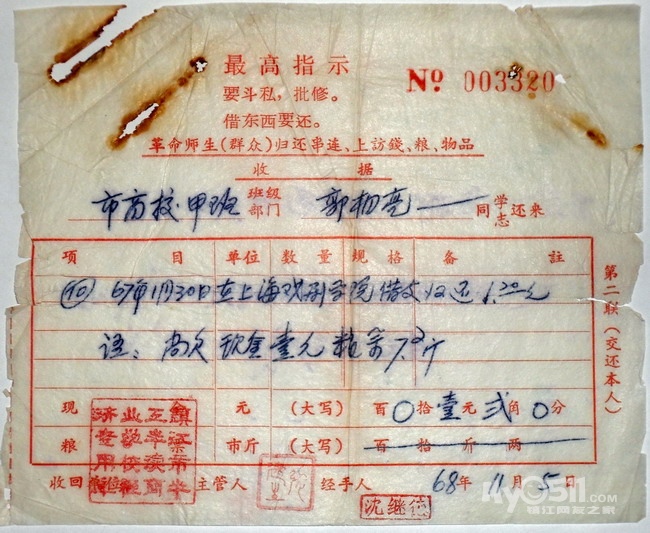 最高指示
No 003320
要斗私，批修。
借东西要还。
革命师生（群众）归还串连、上訪錢、粮、物品
收据
市商校甲班 班级部门 郭栩亮 同学志还来
项目 单位 数量 规格 备註
⑩ 67年1月30日在上海戏剧学院借支归还1.20元
注：尚欠现金壹元粮票7.2斤
现金 元 （大写） 百〇拾壹元贰角〇分
粮 市斤 （大写） 百拾斤两
收回单位 主管人 经手人 沈继德 68年11月5日
第二联（交还本人）
my0511.com
镇江网友之家